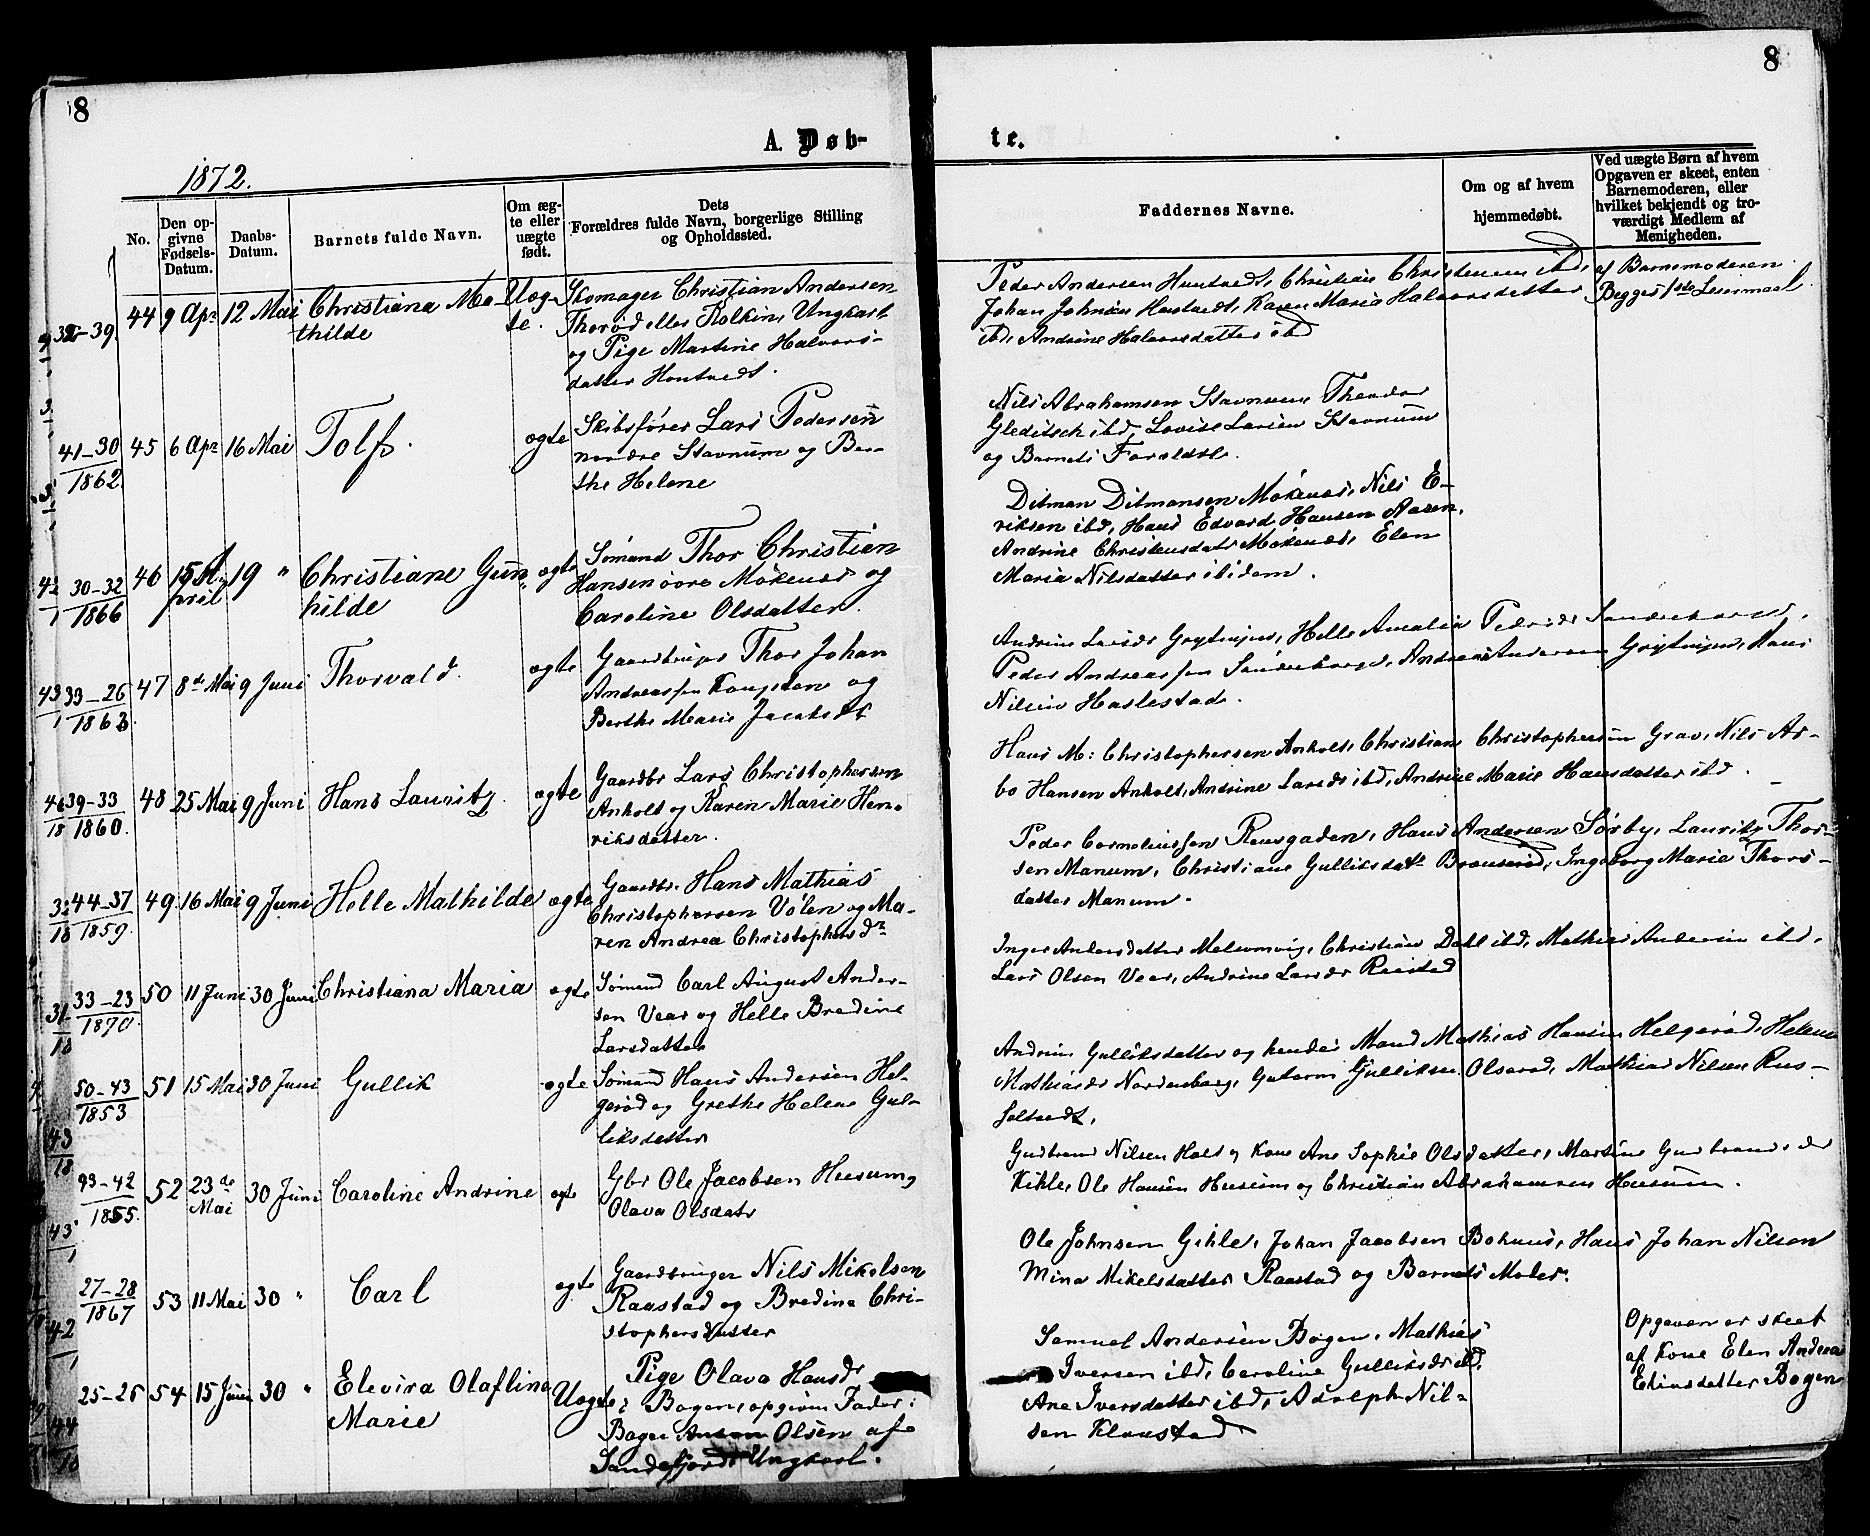 8
8
A. Døb-
te.
1872.
No.
Den op-
givne
Fødsels-
Datum.
Daabs-
Datum.
Barnets fulde Navn.
Om æg-
te eller
uægte
født.
Dets
Forældres fulde Navn, borgerlige Stilling
og Opholdssted.
Faddernes Navne.
Om og af hvem
hjemmedøbt.
Ved uægte Børn af hvem
Opgaven er skeet, enten
Barnemoderen, eller
hvilket bekjendt og tro-
værdigt Medlem af
Menigheden.
44 9 Apr 12 Mai Christiana Ma-
thilde
Uæg-
te.
Skomager Christian Andersen
Thorød eller Rolkin, Ungkarl
og Pige Martine Halvors-
datter Hontvedt.
Peder Andersen Huntvedt, Christian Christensen ibd,
Johan Johnsen Hontvedt, Karen Maria Halvorsdatter
ibd, Andrine Halvorsdatter ibd
af Barnemoderen
Begges 1ste Leiermaal.
41-30
1862
45 6 Apr 16 Mai Tolf. ægte
Skibsfører Lars Pedersen
nordre Stavnum og Ber-
the Helene
Nils Abrahamsen Stavnum, Theodor
Gleditsch ibd, Lovise Larsen Stavnum
og Barnets Forældre.
30-32
1866
46 15 A-
pril
19 " Christiane Gun-
hilde
ægte
Sømand Thor Christian
Hansen øvre Møkenes og
Caroline Olsdatter.
Ditman Ditmansen Møkenes, Nils E-
riksen ibd, Hans Edvard Hansen Aasen,
Andrine Christensdatr Møkenes, Elen
Maria Nilsdatter ibidem.
33-26
1863
47 8de Mai 9 Juni Thorvald. ægte
Gaardbruger Thor Johan
Andreassen Haugsten og
Berthe Marie Jacobsdt
Andrine Larsdr Grytnes, Helle Amalia Pedersdr
Peder Andreassen Andreas Andersen Hans
Nilsen Haslestad.
39-33
1860.
48 25 Mai 9 Juni Hans Lauritz. ægte
Gaardbr Lars Christophersen
Anholt og Karen Marie Hen-
riksdatter.
Hans M: Christophersen Anholt, Christian Christophersen Grav, Nils Ar-
bo Hansen Anholt, Andrine Larsdr ibd, Andrine Marie Hansdatter ibd.
44-37
1859.
49 16 Mai 9 Juni Helle Mathilde ægte
Gaardbr. Hans Mathias
Christophersen Vølen og Ma-
ren Andrea Christophersdr
Peder Corneliussen Hans Andersen Sørby, Lauritz Thor-
sen Manum, Christiane Gulliksdatr Ingeborg Marie Thors-
datter Manum.
33-23
1870.
50 11 Juni 30 Juni Christiana Maria ægte
Sømand Carl August Ander-
sen Vear og Helle Bredine
Larsdatter
Inger Andersdatter Melsomvig, Christian Dahl ibd, Mathias Andersen ibd,
Lars Olsen Vear, Andrine Larsdr Raastad
50-43
1853
51 15 Mai 30 Juni Gullik ægte
Sømand Hans Andersen Hel-
gerød og Grethe Helene Gul-
liksdatter
Andrine Gulliksdatter og hendes Mand Mathias Hansen Helgerød, Helene
Mathiasdr Nordenberg, Guttorm Gulliksen Olserød, Mathias Nilsen Rus-
seltvedt.
93-42
1855.
52 23de
Mai
30 Juni Caroline Andrine ægte
Gbr Ole Jacobsen Husum og
Olava Olsdatr
Gudbrand Nilsen Holt og Kone Ane Sophie Olsdatter, Martine Gudbrandsdr
Kihle, Ole Hansen Husum og Christian Abrahamsen Husum.
27-28
1867
53 11 Mai 30 " Carl ægte
Gaardbruger Nils Mikelsen
Raastad og Bredine Chri-
stophersdatter
Ole Johnsen Gihle, Johan Jacobsen Bohus, Hans Johan Nilsen
Mina Mikelsdatter Raastad og Barnets Moder.
25-25 54 15 Juni 30 " Elevira Olafline
Marie
Uægte
Pige Olava Hansdr
Bogen, opgiven Fader:
Bager Olsen af
Sandefjord Ungkarl.
Samuel Andersen Bogen, Mathias
Iversen ibd, Caroline Gulliksdr ibd,
Ane Iversdatter ibd, Adolph Nil-
sen Klaastad.
Opgaven er skeet
af Kone Elen Andrea
Eliasdatter Bogen